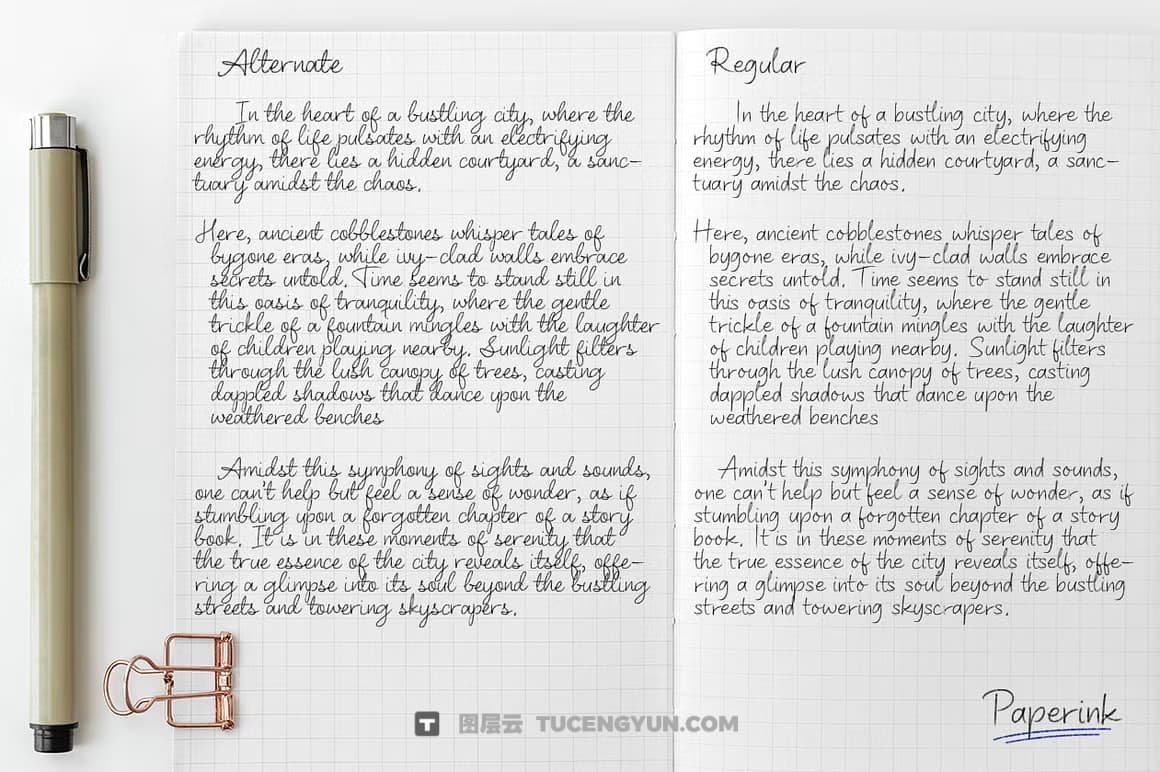 Alternate
In the heart of a bustling city, where the
rhythm of life pulsates with an electrifying
energy, there lies a hidden courtyard, a sanc-
tuary amidst the chaos.
Here, ancient cobblestones whisper tales of
bygone eras, while ivy-clad walls embrace
secrets untold. Time seems to stand still in
this oasis of tranquility, where the gentle
trickle of a fountain mingles with the laughter
of children playing nearby. Sunlight filters
through the lush canopy of trees, casting
dappled shadows that dance upon the
weathered benches
Amidst this symphony of sights and sounds,
one can't help but feel a sense of wonder, as if
stumbling upon a forgotten chapter of a story
book. It is in these moments of serenity that
the true essence of the city reveals itself, offe-
ring a glimpse into its soul beyond the bustling
streets and towering skyscrapers.
Regular
In the heart of a bustling city, where the
rhythm of life pulsates with an electrifying
energy, there lies a hidden courtyard, a sanc-
tuary amidst the chaos.
Here, ancient cobblestones whisper tales of
bygone eras, while ivy-clad walls embrace
secrets untold. Time seems to stand still in
this oasis of tranquility, where the gentle
trickle of a fountain mingles with the laughter
of children playing nearby. Sunlight filters
through the lush canopy of trees, casting
dappled shadows that dance upon the
weathered benches
Amidst this symphony of sights and sounds,
one can't help but feel a sense of wonder, as if
stumbling upon a forgotten chapter of a story
book. It is in these moments of serenity that
the true essence of the city reveals itself, offe-
ring a glimpse into its soul beyond the bustling
streets and towering skyscrapers.
Paperink
T 图层云 TUCENGYUN.COM